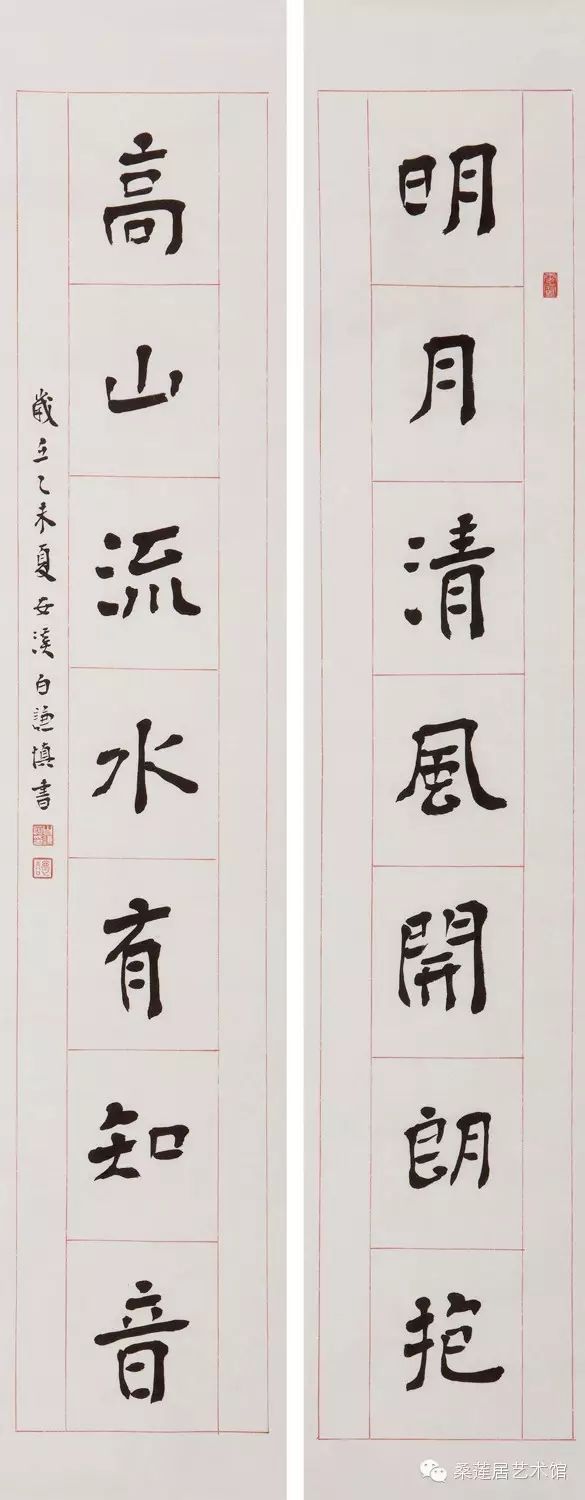 明月清風開朗抱
高山流水有知音
歲在乙未夏安溪白謙慎書
桑莲居艺术馆